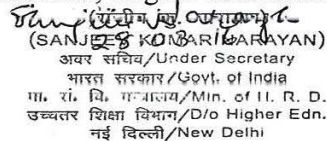 (SANJEEV KUMAR NARAYAN)
28
अवर सचिव/Under Secretary
भारत सरकार/Govt. of India
मा. सं. वि. मन्त्रालय/Min. of H. R. D.
उच्चतर शिक्षा विभाग/D/o Higher Edn.
नई दिल्ली/New Delhi